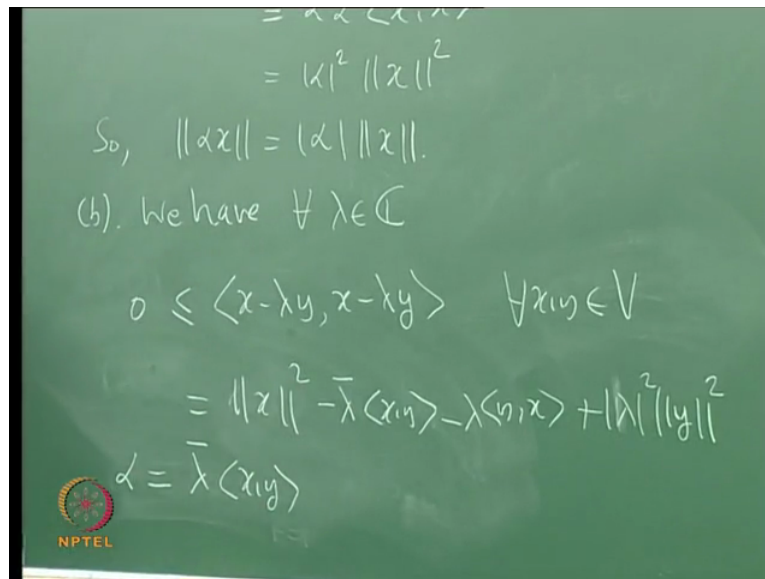 = αα⟨x,x⟩
= |α|² ||x||²
So, ||αx|| = |α| ||x||.
(b). We have ∀ λ∈ℂ
0 ≤ ⟨x-λy, x-λy⟩ ∀x,y ∈ V
= ||x||² - λ̄⟨x,y⟩ - λ⟨y,x⟩ + |λ|² ||y||²
α = λ̄⟨x,y⟩
NPTEL